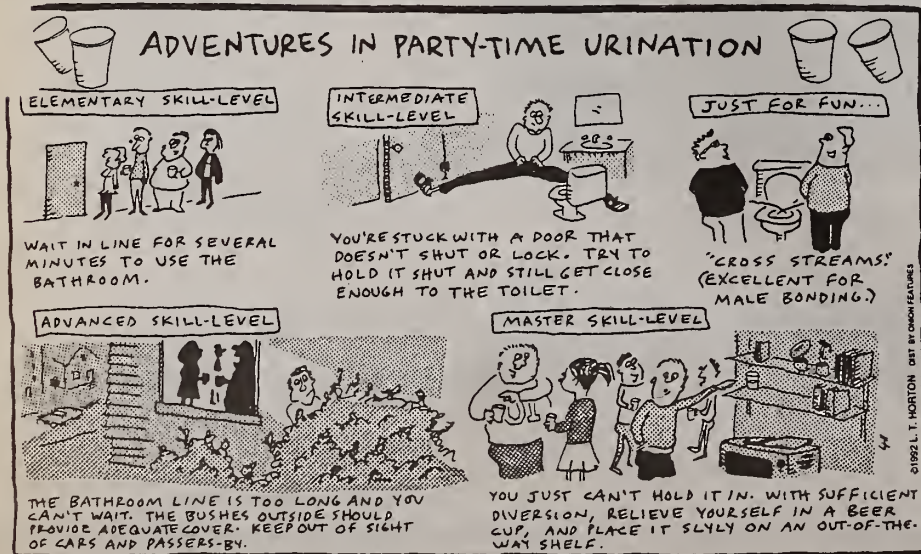 ADVENTURES IN PARTY-TIME URINATION
ELEMENTARY SKILL-LEVEL
WAIT IN LINE FOR SEVERAL
MINUTES TO USE THE
BATHROOM.
INTERMEDIATE
SKILL-LEVEL
YOU'RE STUCK WITH A DOOR THAT
DOESN'T SHUT OR LOCK. TRY TO
HOLD IT SHUT AND STILL GET CLOSE
ENOUGH TO THE TOILET.
JUST FOR FUN...
"CROSS STREAMS."
(EXCELLENT FOR
MALE BONDING.)
ADVANCED SKILL-LEVEL
THE BATHROOM LINE IS TOO LONG AND YOU
CAN'T WAIT. THE BUSHES OUTSIDE SHOULD
PROVIDE ADEQUATE COVER. KEEP OUT OF SIGHT
OF CARS AND PASSERS-BY.
MASTER SKILL-LEVEL
YOU JUST CAN'T HOLD IT IN. WITH SUFFICIENT
DIVERSION, RELIEVE YOURSELF IN A BEER
CUP, AND PLACE IT SLYLY ON AN OUT-OF-THE-
WAY SHELF.
©1992 L. T. HORTON DIST BY ONION FEATURES